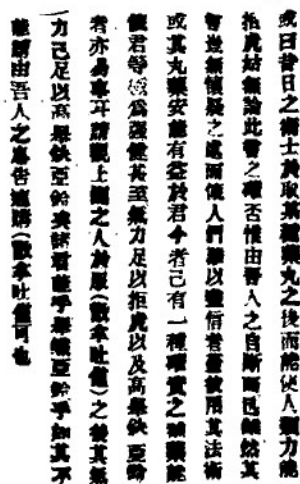 或曰昔日之術士於取某種藥丸之後而能使人類力能
拒虎姑無論此言之確否惟由吾人之自斷而已雖然其
智豈無懷疑之處而使人們難以盡信者蓋欲用其法術
或其丸藥安能有益於君今者已有一種確實之補藥能
使君等極為强健其至氣力足以拒虎以及高舉鉄亞鈴
者亦易事耳請觀上圖之人於服(散拿吐瑾)之後其氣
力己足以高舉鉄亞鈴矣諸君能乎舉鐵亞鈴乎如其不
能請由吾人之忠告速購(散拿吐瑾)可也